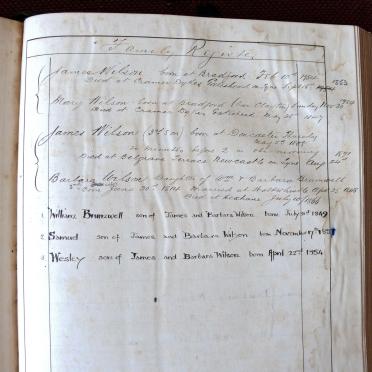 Family Register
James Wilson born at Bradford Feb 10th 1784
Died at Cramer Dykes Gateshead on Tyne Sept 15th 1853
Mary Wilson born at Bradford Sunday Nov 26
Died at Cramer Dykes Gateshead May 25th 1847
James Wilson (3d son) born at Doncaster Thursday
May 5th
minutes before 2 in the morning
Died at Belgrave Terrace Newcastle on Tyne Aug 24th 1891
Barbara Wilson Daughter of Wm & Barbara Brumwell
Born June 30th 1814 Married at Apr 25 1848
Died at Hexham July 10/1886
1 William Brumwell son of James and Barbara Wilson born July 30th 1849
2 Samuel son of James and Barbara Wilson born November 17th
3 Wesley son of James and Barbara Wilson born April 22nd 1854